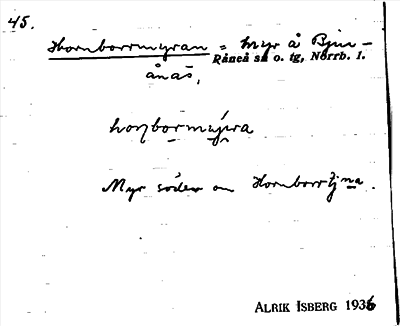 45.
Hornborrmyran = Myr å Bjur-
Råneå sn o. tg, Norrb. l.
ånäs,
Myr söder om Hornborrtj:na.
ALRIK ISBERG 1936